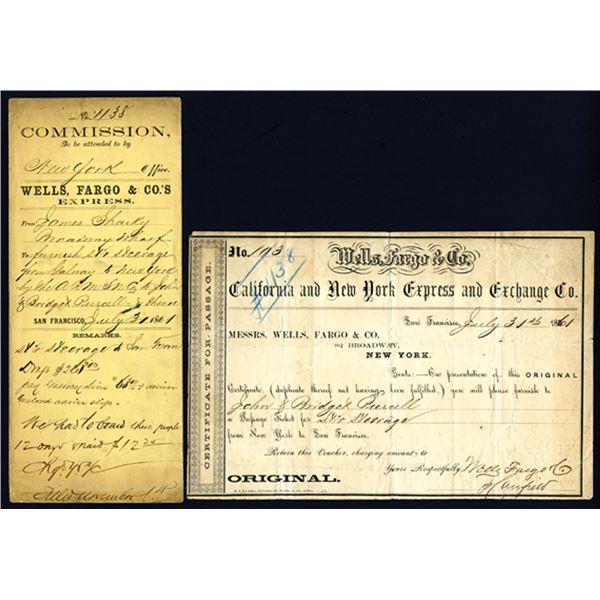 No. 1138
COMMISSION,
To be attended to by
New York Office.
WELLS, FARGO & CO.'S
EXPRESS.
From James Sharky
Broadway Wharf
To furnish Str Steerage
from Galway to New York
by the to John
& Bridget Purcell & thence
SAN FRANCISCO, July 31 1861
REMARKS.
Str Steerage to San
pay
advice slip.
We had to board these people
12 days & paid $12
Filed November
CERTIFICATE FOR PASSAGE.
No. 193
#1138
Wells, Fargo & Co.
California and New York Express and Exchange Co.
San Francisco, July 31st 1861
MESSRS. WELLS, FARGO & CO.
82 BROADWAY,
NEW YORK.
Gents:—One presentation of this ORIGINAL
Certificate, (duplicate thereof not having been fulfilled,) you will please furnish to
John & Bridget Purcell
a Passage Ticket for Str Steerage
from New York to San Francisco.
Return this Voucher, charging amount to
Yours Respectfully, Wells Fargo & Co
ORIGINAL.